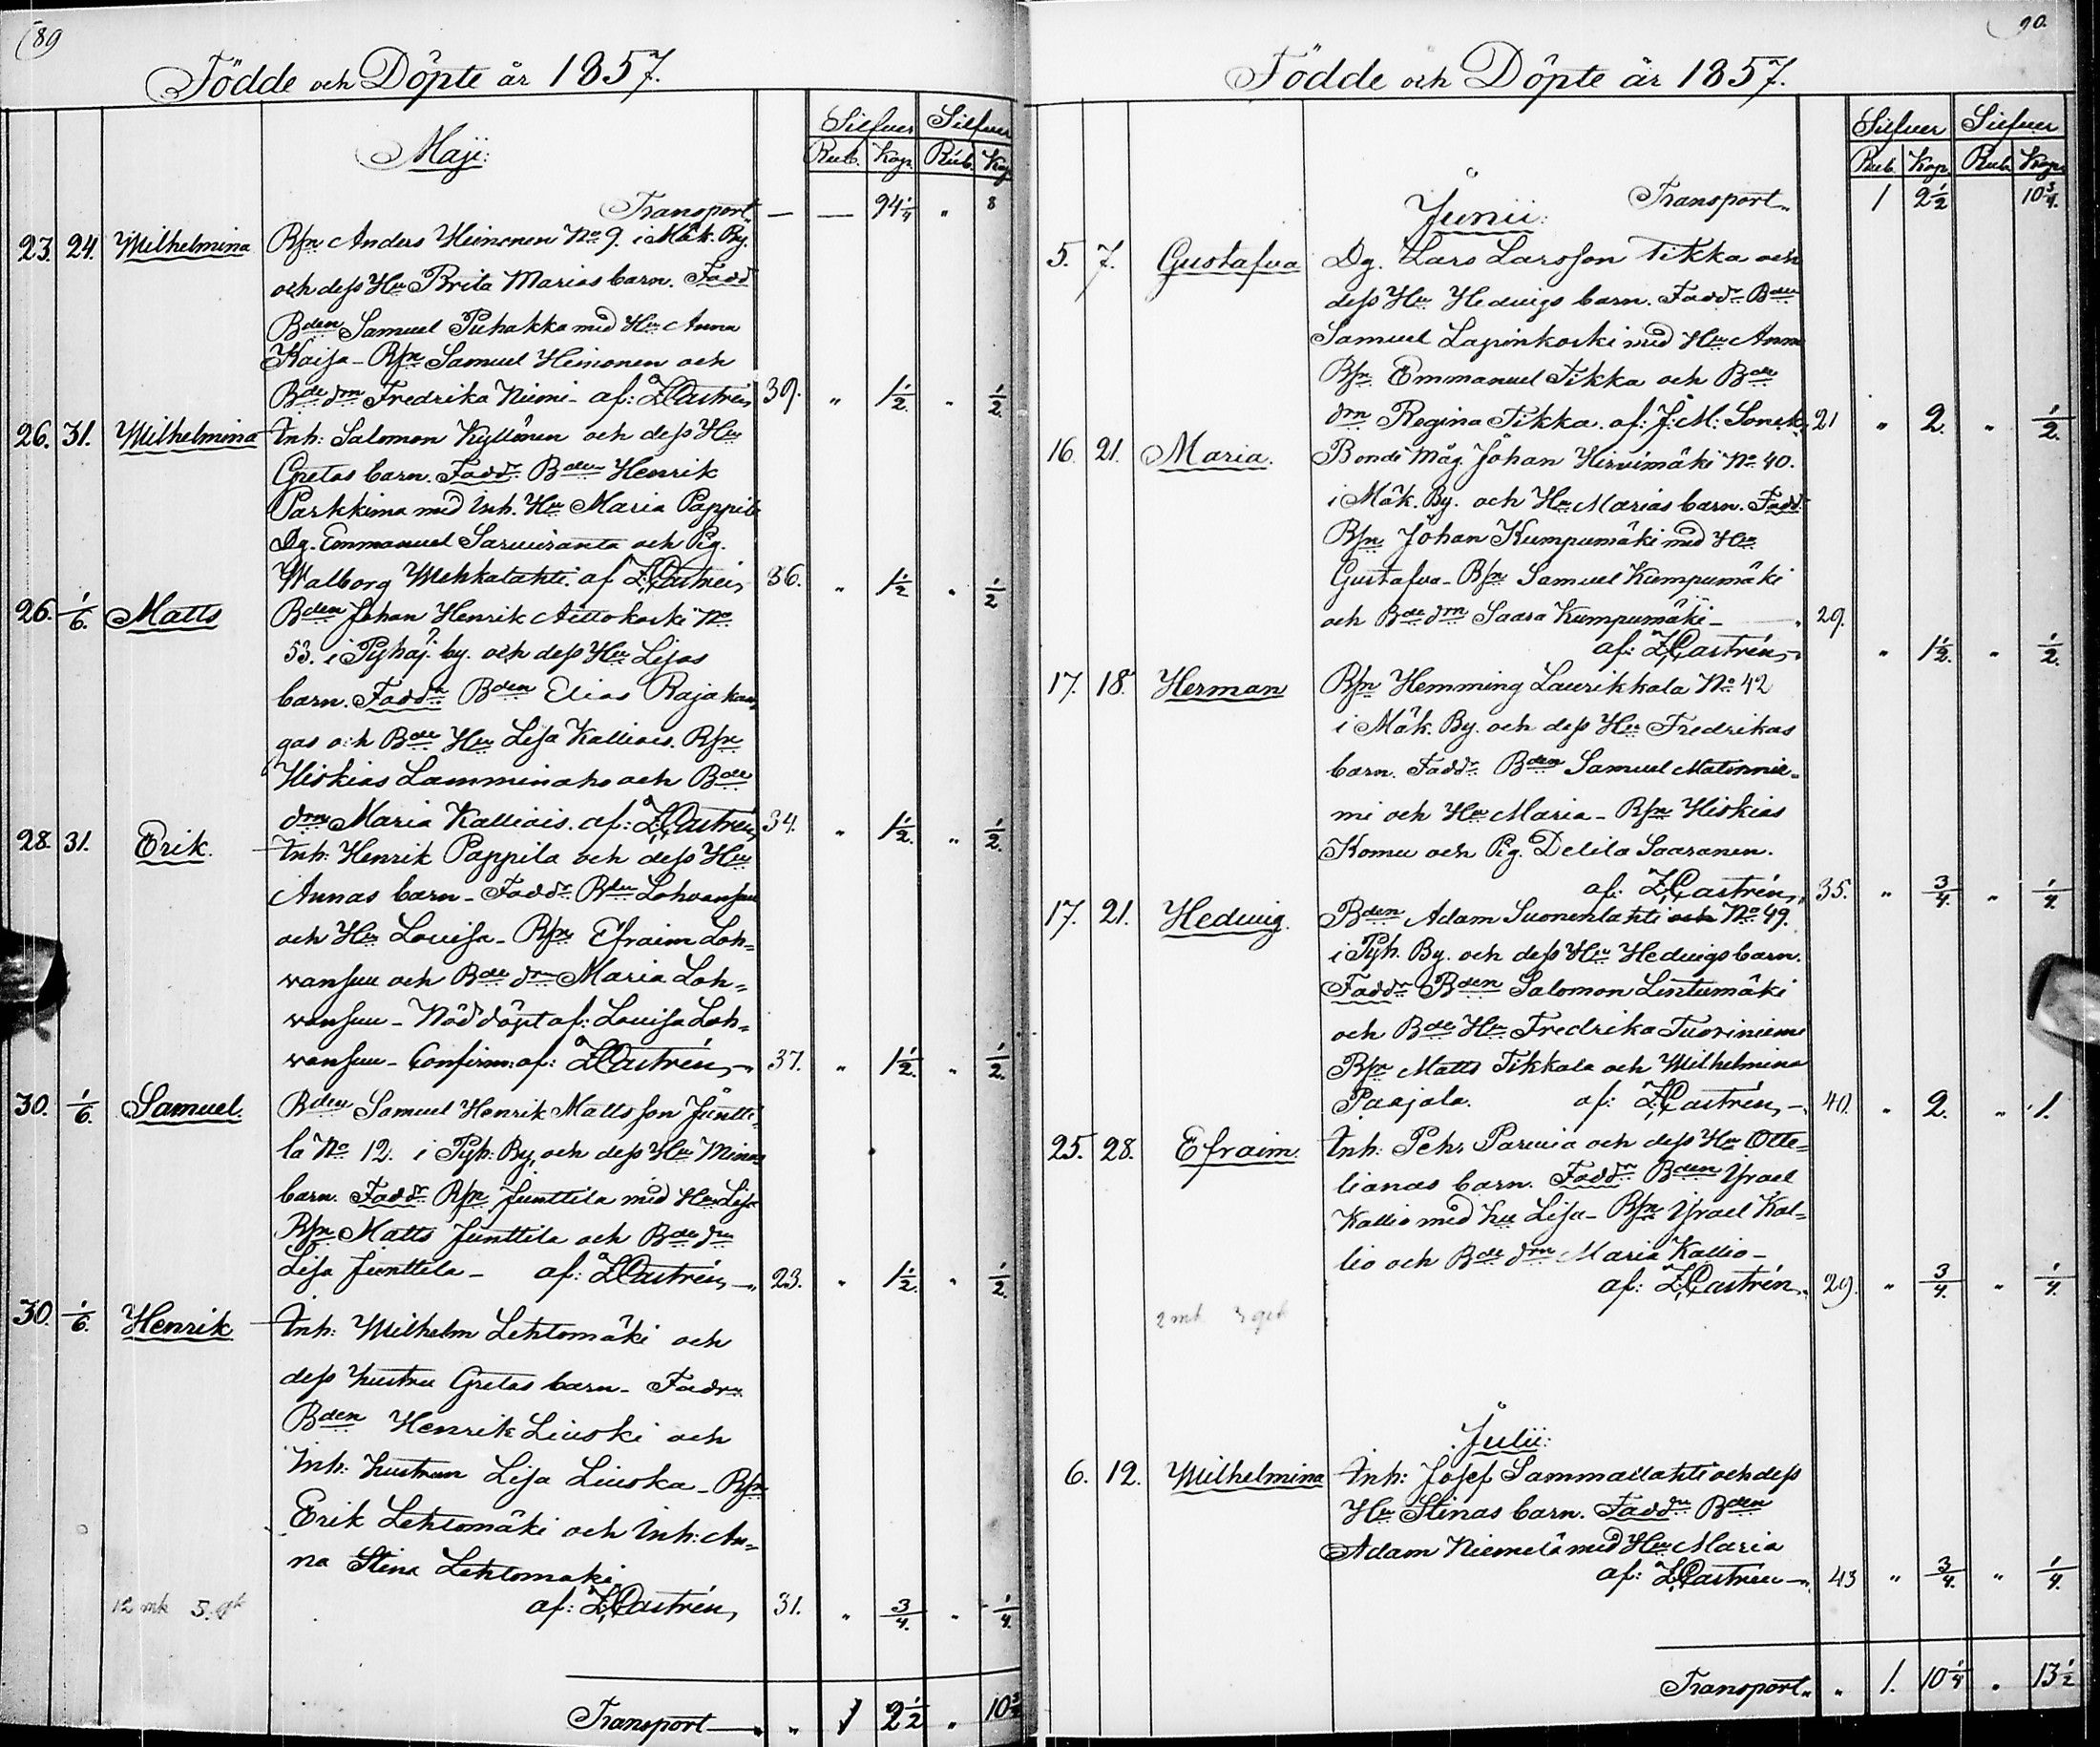 89
Födde och Döpte år 1857.
Silfver Silfver
Rub. Kop. Rub. Kop
Maji:
Transport — — 94 1/4 " 8
23. 24. Wilhelmina Bspn Anders Heinonen No 9. i Mäk. By.
och dess Hu Brita Marias barn. Fadd
Bden Samuel Puhakka med Hu Anna
Kaisa – Bspn Samuel Heinonen och
Bde drn Fredrika Niemi – af: Z:Castrén 39. " 1 1/2. " 1/2.
26. 31. Wilhelmina Inh: Salomon Kyllönen och dess Hu
Gretas barn. Faddr Bden Henrik
Parkkima med Inh. Hu Maria Pappila
Dg. Emmanuel Sarviranta och Pig.
Walborg Wehkalahti. af Z:Castrén 36. " 1 1/2 " 1/2
26. 1/6. Matts Bden Johan Henrik Aittokoski No
53. i Pyhäj. by. och dess Hu Lisas
barn. Faddr Bden Elias Rajakan
gas och Bde Hu Lisa Kalliais. Bspn
Hiskias Lamminaho och Bde
drn Maria Kalliais. af: Z:Castrén 34. " 1 1/2. " 1/2.
28. 31. Erik. Inh: Henrik Pappila och dess Hu
Annas barn – Faddr Bden Lohvansuu
och Hu Lovisa – Bspn Efraim Loh=
vansuu och Bde drn Maria Loh=
vansuu – Nöddöpt af: Lovisa Loh=
vansuu – Confirm: af: Z:Castrén 37. " 1 1/2. " 1/2.
30. 1/6. Samuel. Bden Samuel Henrik Mattsson Juntti
la No 12. i Pyh: By. och dess Hu Minas
barn. Faddr Bspn Junttila med Hu Lisa
Bspn Matts Junttila och Bde drn
Lisa Junttila – af: Z:Castrén 23. " 1 1/2. " 1/2.
30. 1/6. Henrik Inh: Wilhelm Lehtomäki och
dess hustru Gretas barn – Faddr
Bden Henrik Liuski och
Inh: hustrun Lisa Liuska – Bspn
Erik Lehtomäki och Inh: An=
na Stina Lehtomaki
af: Z:Castrén 31. " 3/4. " 1/4.
12 mk 5. qk
Transport — " 1 2 1/2 " 10 3/4
90.
Födde och Döpte år 1857.
Silfver Silfver
Rub. Kop. Rub. Kop.
Junii: Transport 1 2 1/2 10 3/4.
5. 7. Gustafva Dg. Lars Larsson Tikka och
dess Hu Hedvigs barn. Faddr Bden
Samuel Lapinkoski med Hu Anna
Bspn Emmanuel Tikka och Bde
drn Regina Tikka. af: J: M: Sonck 21 " 2. " 1/2.
16. 21. Maria. Bonde Måg. Johan Hirvimäki No 40.
i Mäk. By. och Hu Marias barn. Fadd.
Bspn Johan Kumpumäki med Hu
Gustafva – Bspn Samuel Kumpumäki
och Bde drn Saara Kumpumäki – 29.
af: Z:Castrén " 1 1/2. " 1/2.
17. 18. Herman Bspn Hemming Laurikkala No 42
i Mäk. By. och dess Hu Fredrikas
barn. Faddr Bden Samuel Matonnie=
mi och Hu Maria – Bspn Hiskias
Komu och Pig. Delila Saaranen.
af: Z:Castrén 35. " 3/4. " 1/4.
17. 21. Hedvig. Bden Adam Suonenlahti och No 49.
i Pyh. By. och dess Hu Hedvigs barn.
Faddr Bden Salomon Lintumäki
och Bde Hu Fredrika Tuoriniemi
Bspn Matts Tikkala och Wilhelmina
Paajala. af: Z:Castrén 40. " 2. " 1.
25. 28. Efraim. Inh: Pehr Parvia och dess Hu Otte=
lianas barn. Faddr Bden Israel
Kallio med hu Lisa – Bspn Israel Kal=
lio och Bde drn Maria Kallio –
af: Z:Castrén 29. " 3/4. " 1/4.
2 mk 3 qk
Julii:
6. 12. Wilhelmina Inh: Josef Sammallahti och dess
Hu Stinas barn. Faddr Bden
Adam Niemelä med Hu Maria
af: Z:Castrén 43 " 3/4. " 1/4.
Transport " 1. 10 1/4 " 13 1/2